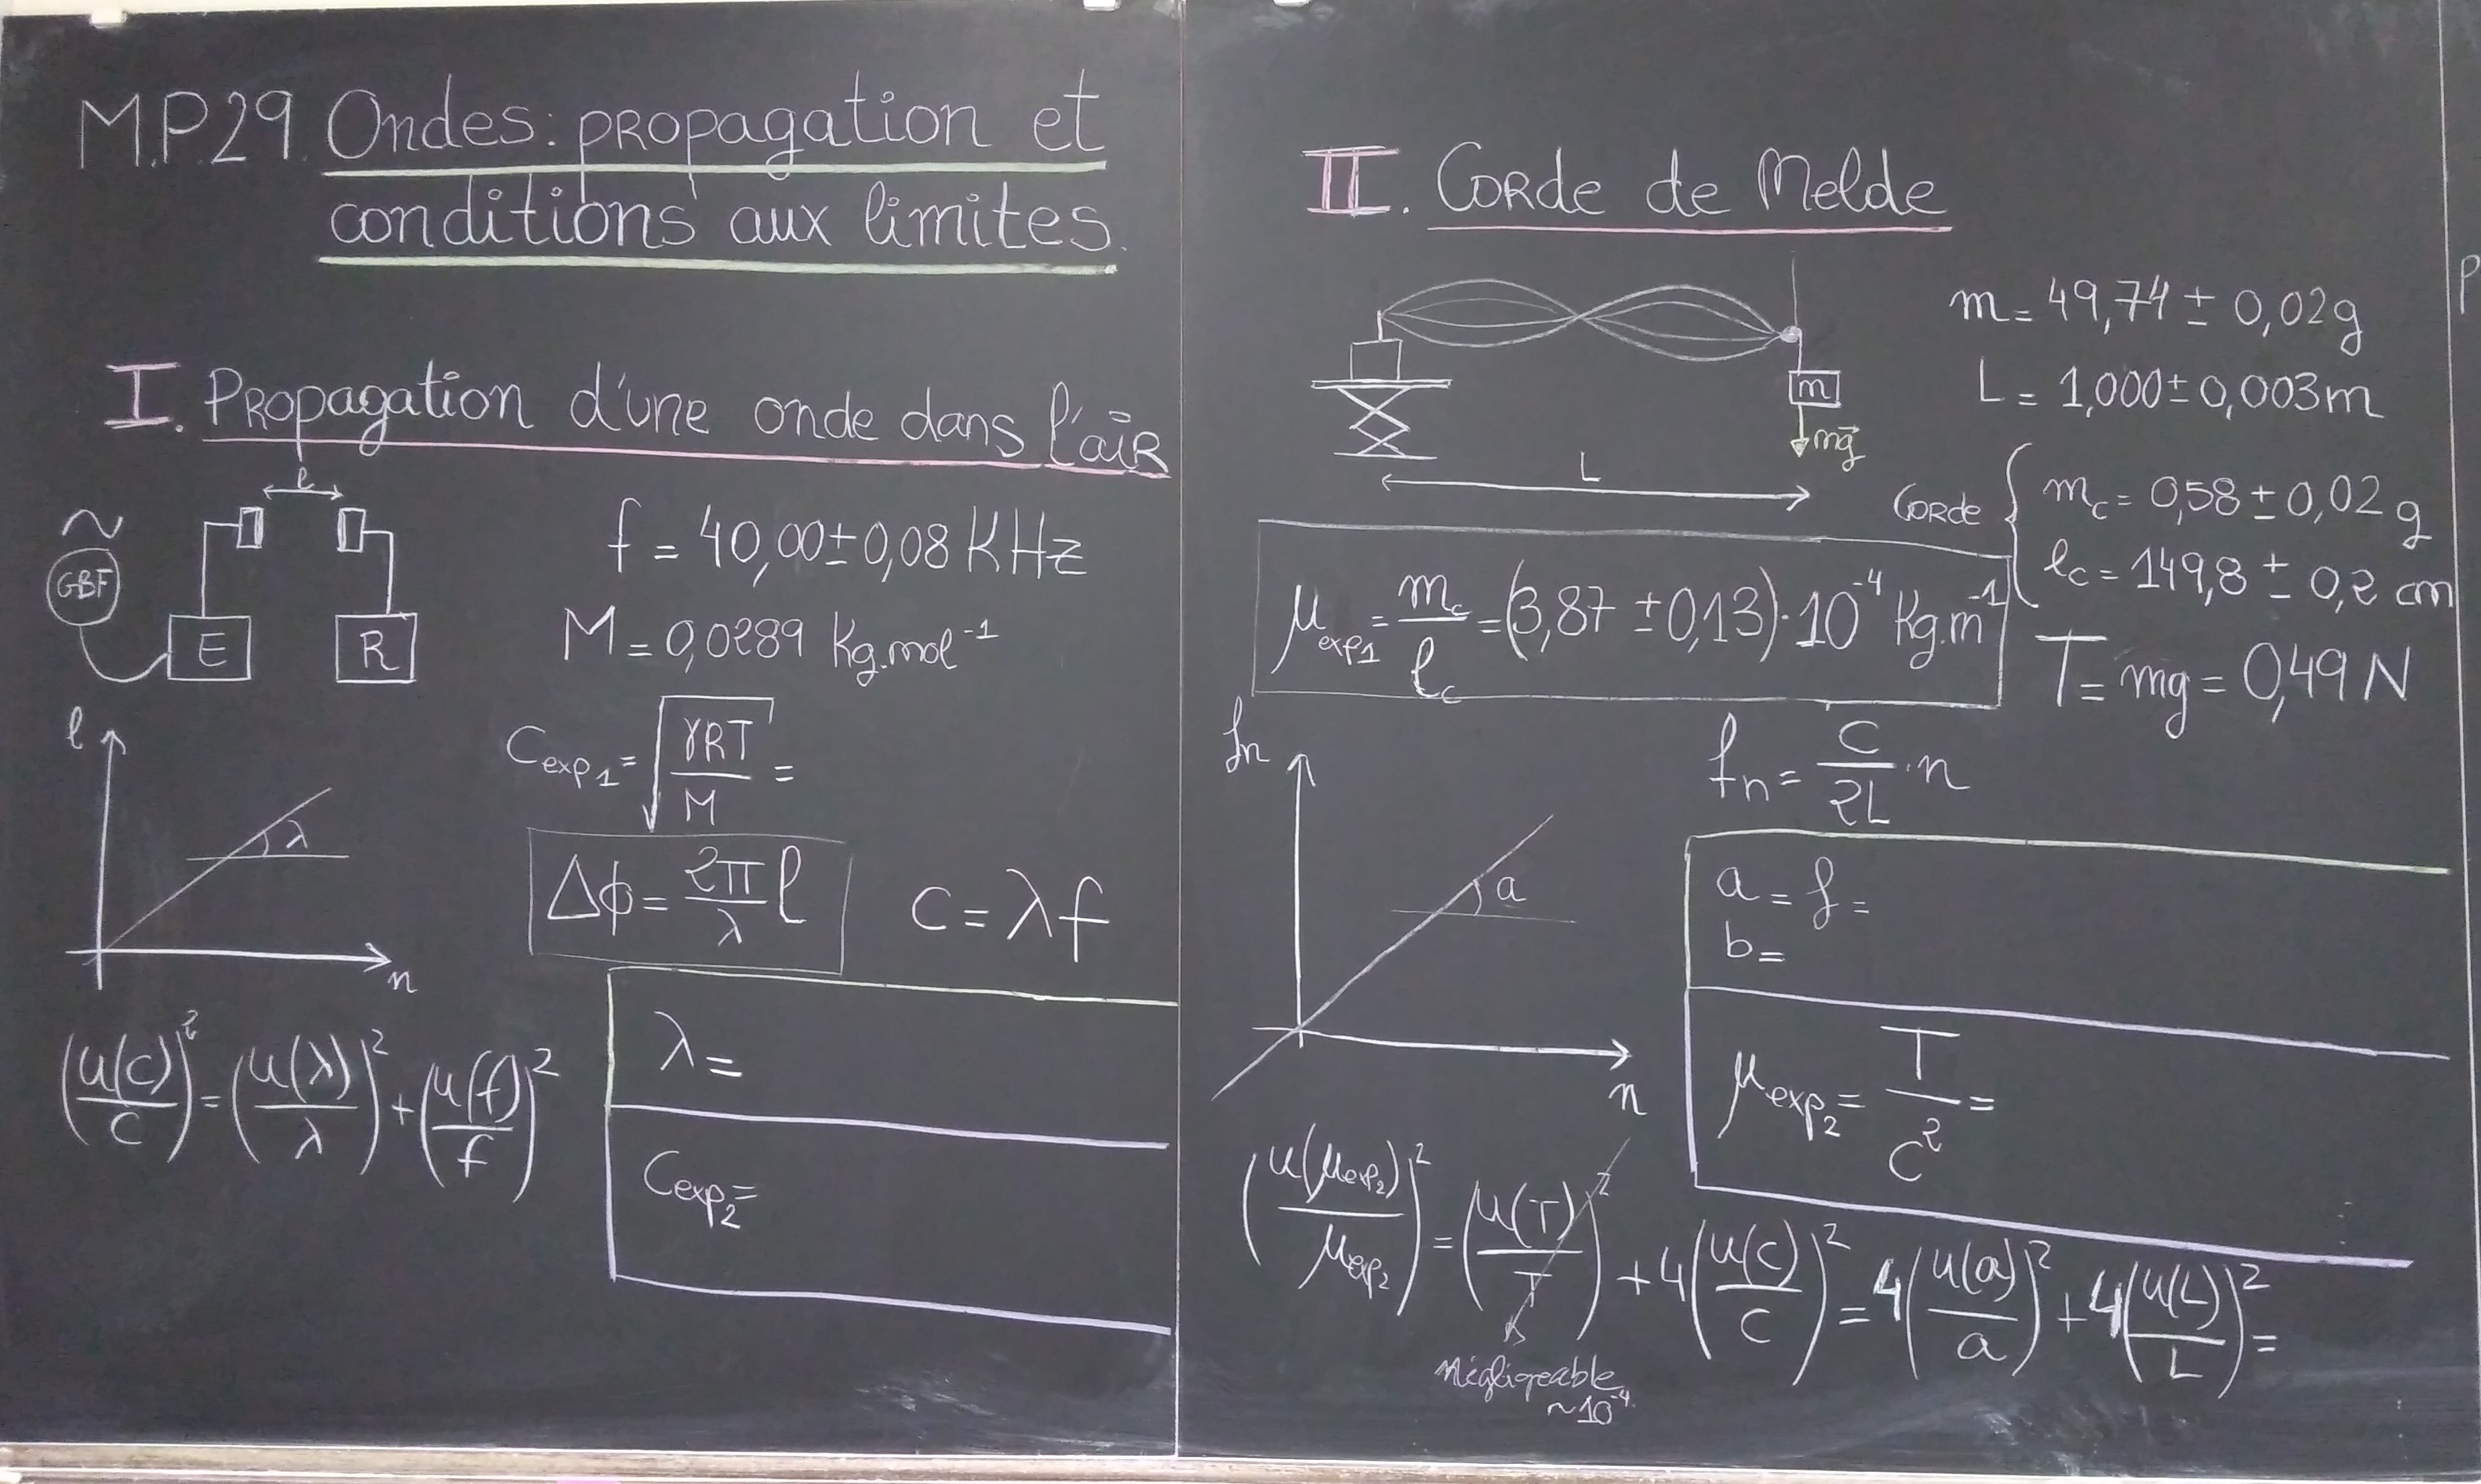 M.P.29. Ondes: propagation et
conditions aux limites.
I. Propagation d'une onde dans l'air
l
~
GBF
E
R
f = 40,00 ± 0,08 KHz
M = 0,0289 Kg.mol⁻¹
l
n
λ
C_exp1 = √(γRT/M) =
Δϕ = (2π/λ) l
c = λf
(u(c)/c)² = (u(λ)/λ)² + (u(f)/f)²
λ =
C_exp2 =
II. Corde de Melde
m
mg⃗
L
m = 49,74 ± 0,02 g
L = 1,000 ± 0,003 m
Corde { m_c = 0,58 ± 0,02 g
l_c = 149,8 ± 0,2 cm
μ_exp1 = m_c/l_c = (3,87 ± 0,13)·10⁻⁴ Kg.m⁻¹
T = mg = 0,49 N
fn
n
a
f_n = (C/2L)·n
a = f =
b =
μ_exp2 = T/C² =
(u(μ_exp2)/μ_exp2)² = (u(T)/T)² + 4(u(c)/c)² = 4(u(a)/a)² + 4(u(L)/L)² =
Négligeable
~10⁻⁴